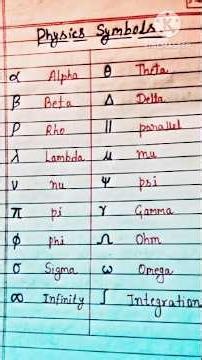 Physics Symbols
α Alpha θ Theta
β Beta Δ Delta
ρ Rho || parallel
λ Lambda μ mu
ν nu Ψ psi
π pi γ Gamma
ϕ phi Ω Ohm
σ Sigma ω Omega
∞ Infinity ∫ Integration